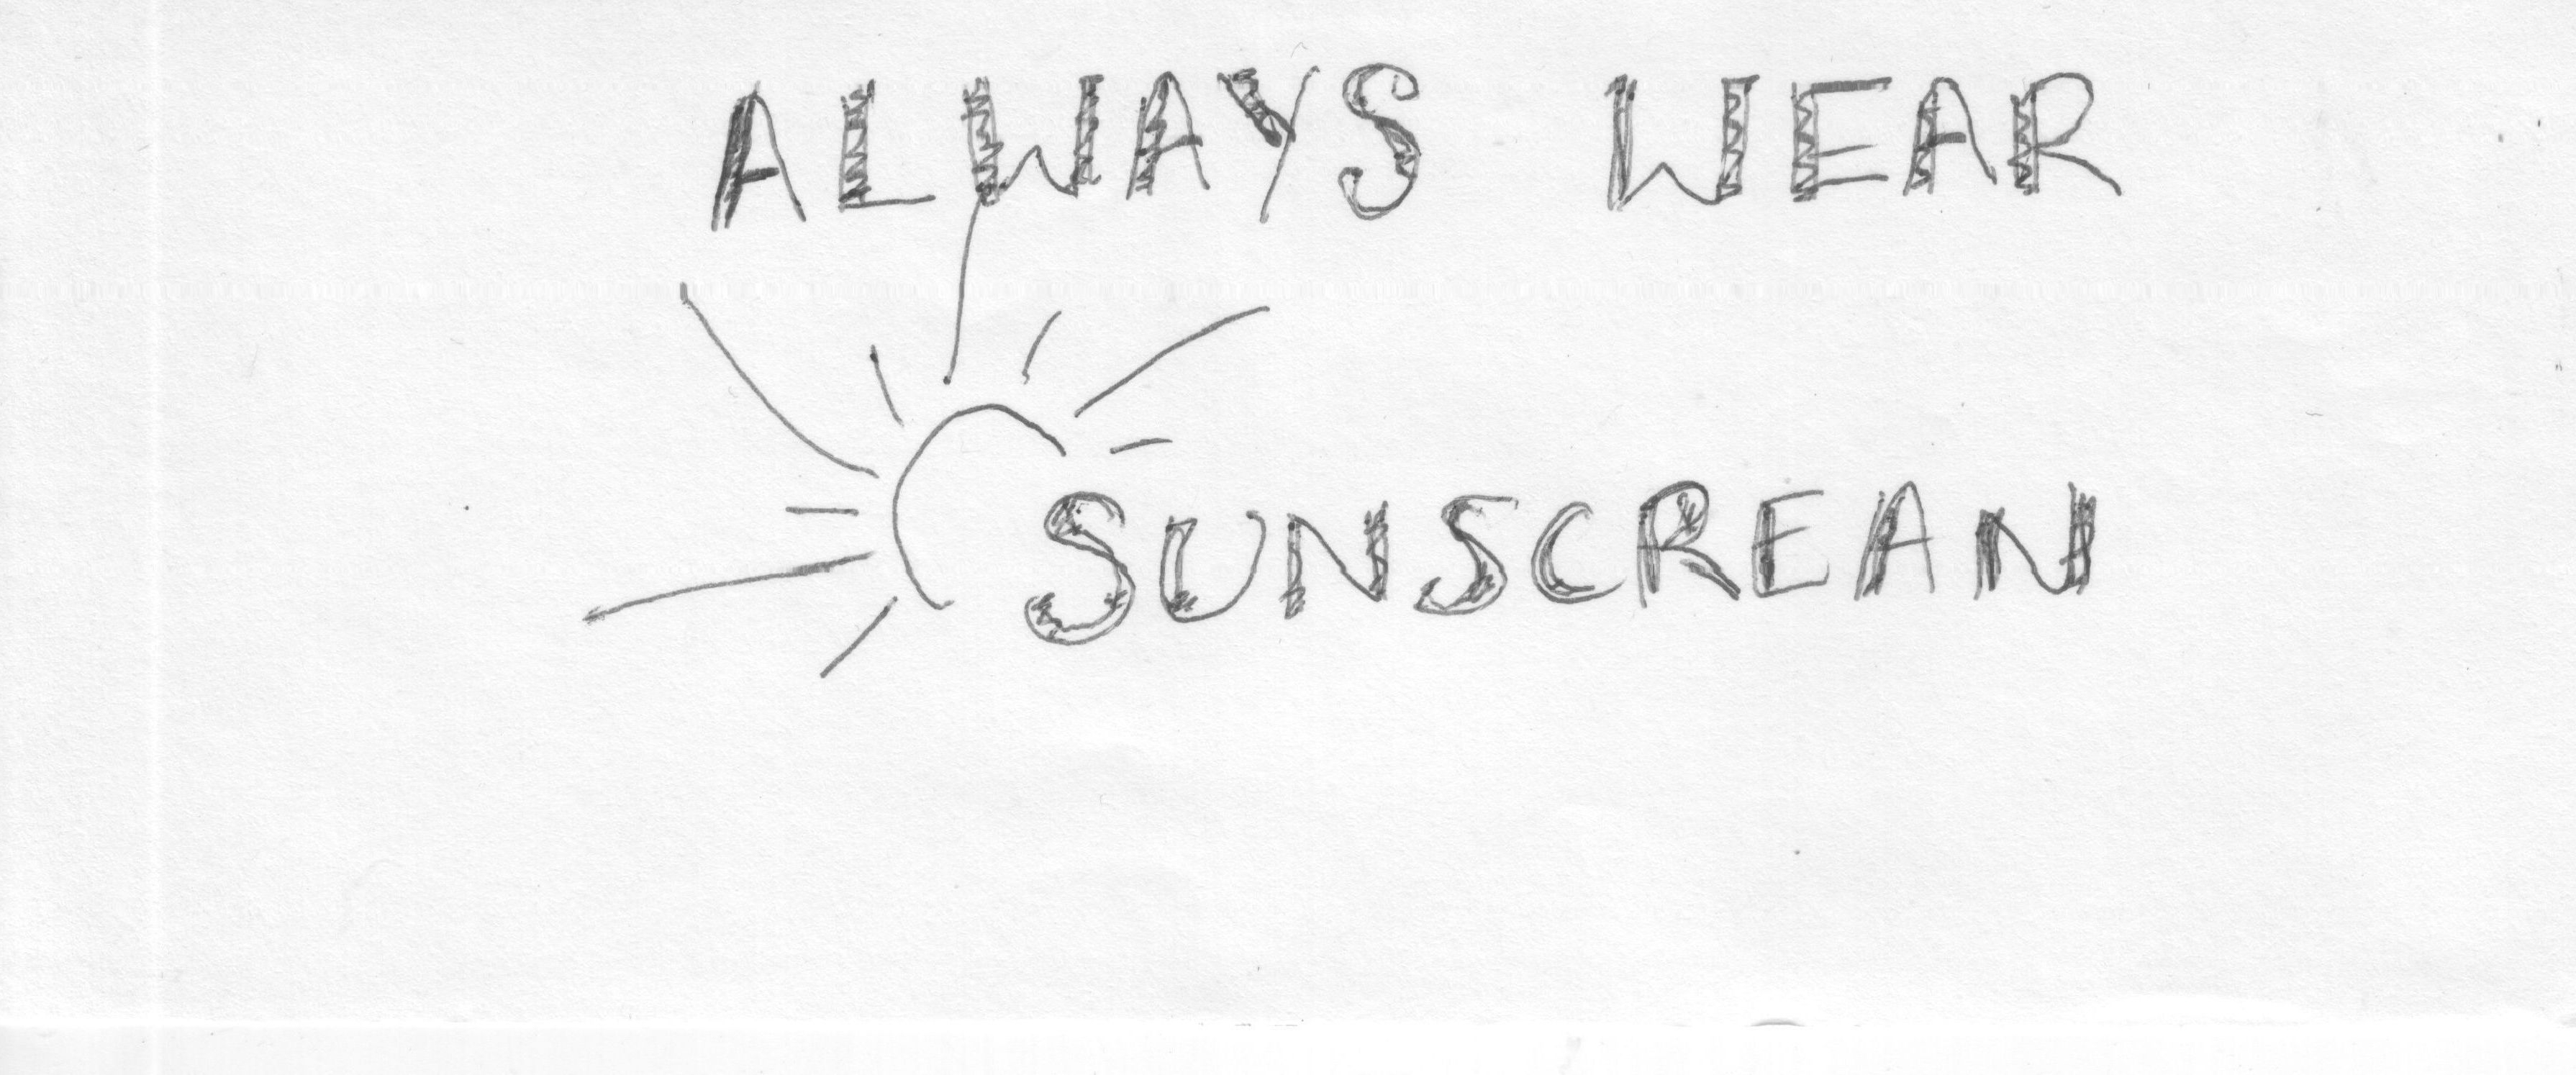 ALWAYS WEAR
SUNSCREAN